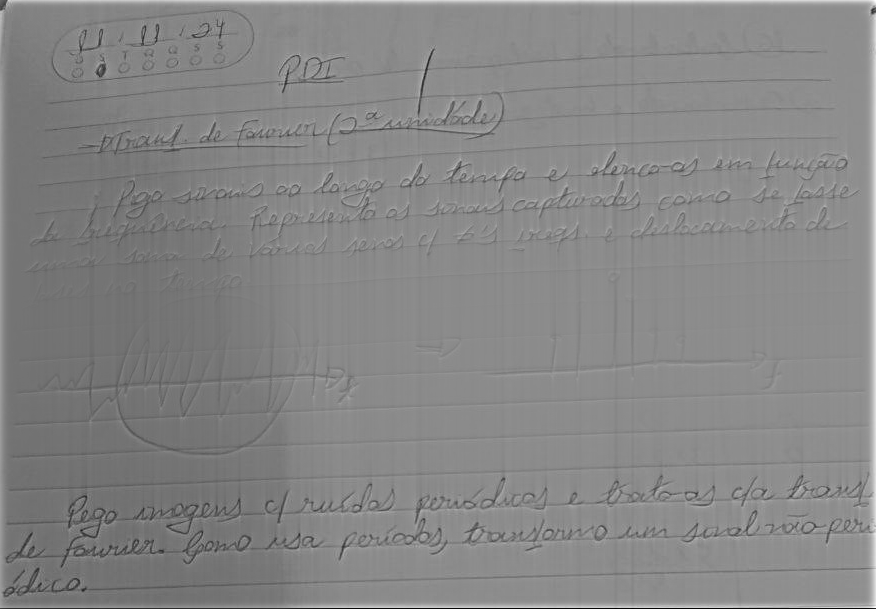 11 . 11 . 24
D S T Q Q S S
PDI
→ Transf. de Fourier (2ª unidade)
Pego sinais ao longo do tempo e elenco-os em função
da frequência. Represento os sinais capturados como se fosse
uma soma de vários senos c/ ≠s freqs. e deslocamento de
no tempo.
t
f
Pego imagens c/ ruídos periódicos e trato-as c/a transf.
de fourier. Como usa períodos, transformo um sinal não-peri
ódico.